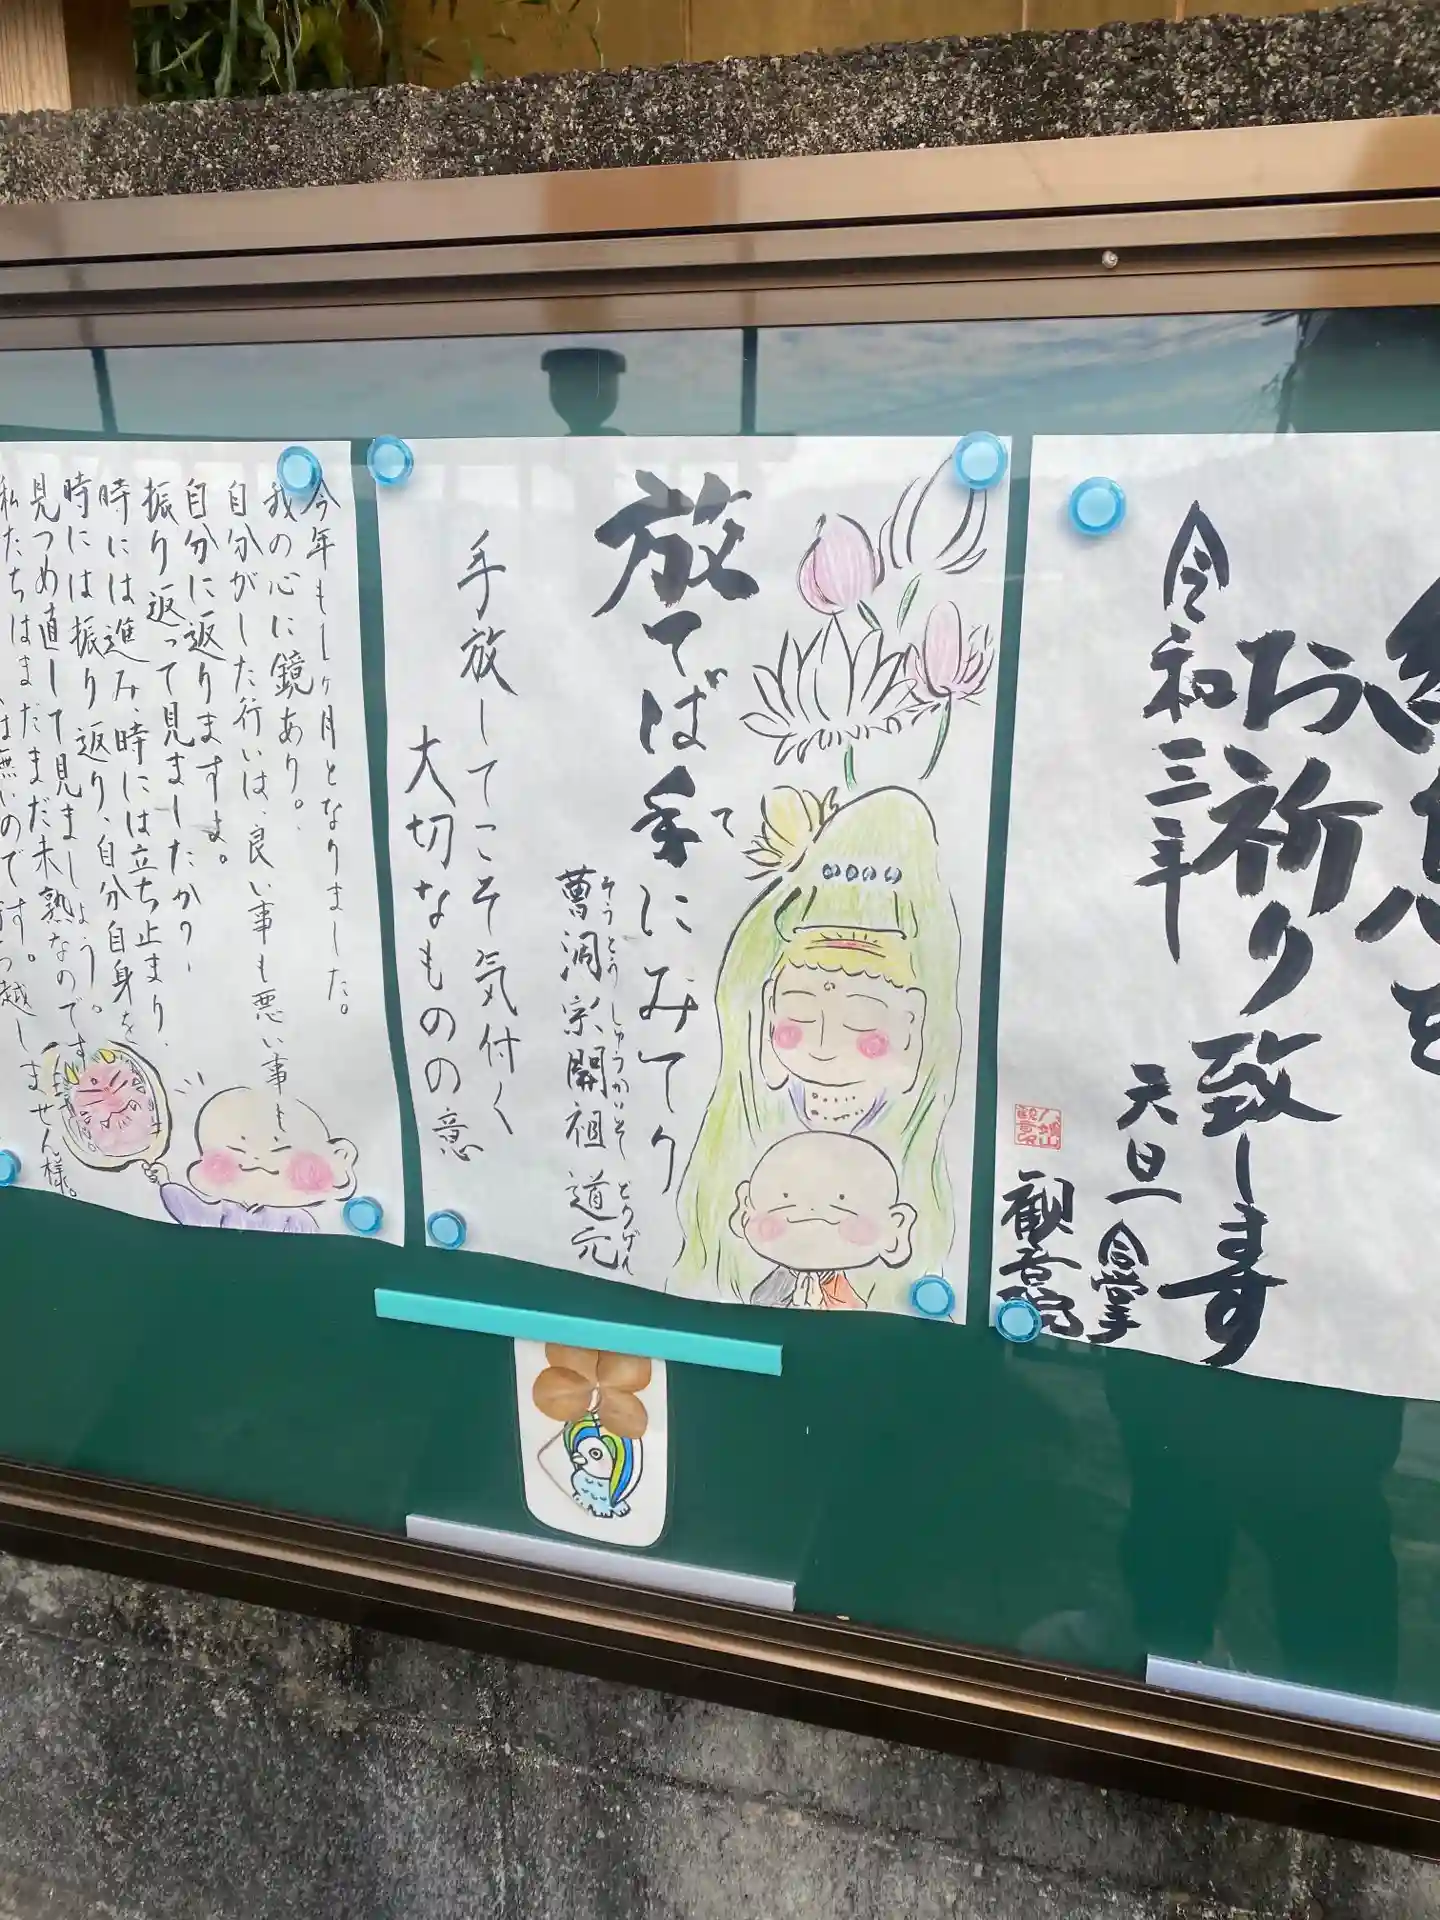 を
お祈り致します
令和三年
元旦
合掌
放てば手にみてり
て
曹洞宗開祖 道元
そうとうしゅうかいそ どうげん
手放してこそ気付く
大切なものの意
今年も1ヶ月となりました。
我の心に鏡あり。
自分がした行いは、良い事も悪い事も
自分に返りますよ。
振り返って見ましたか?
時には進み、時には立ち止まり、
時には振り返り、自分自身を
見つめ直して見ましょう。
私たちはまだまだ未熟なのです。